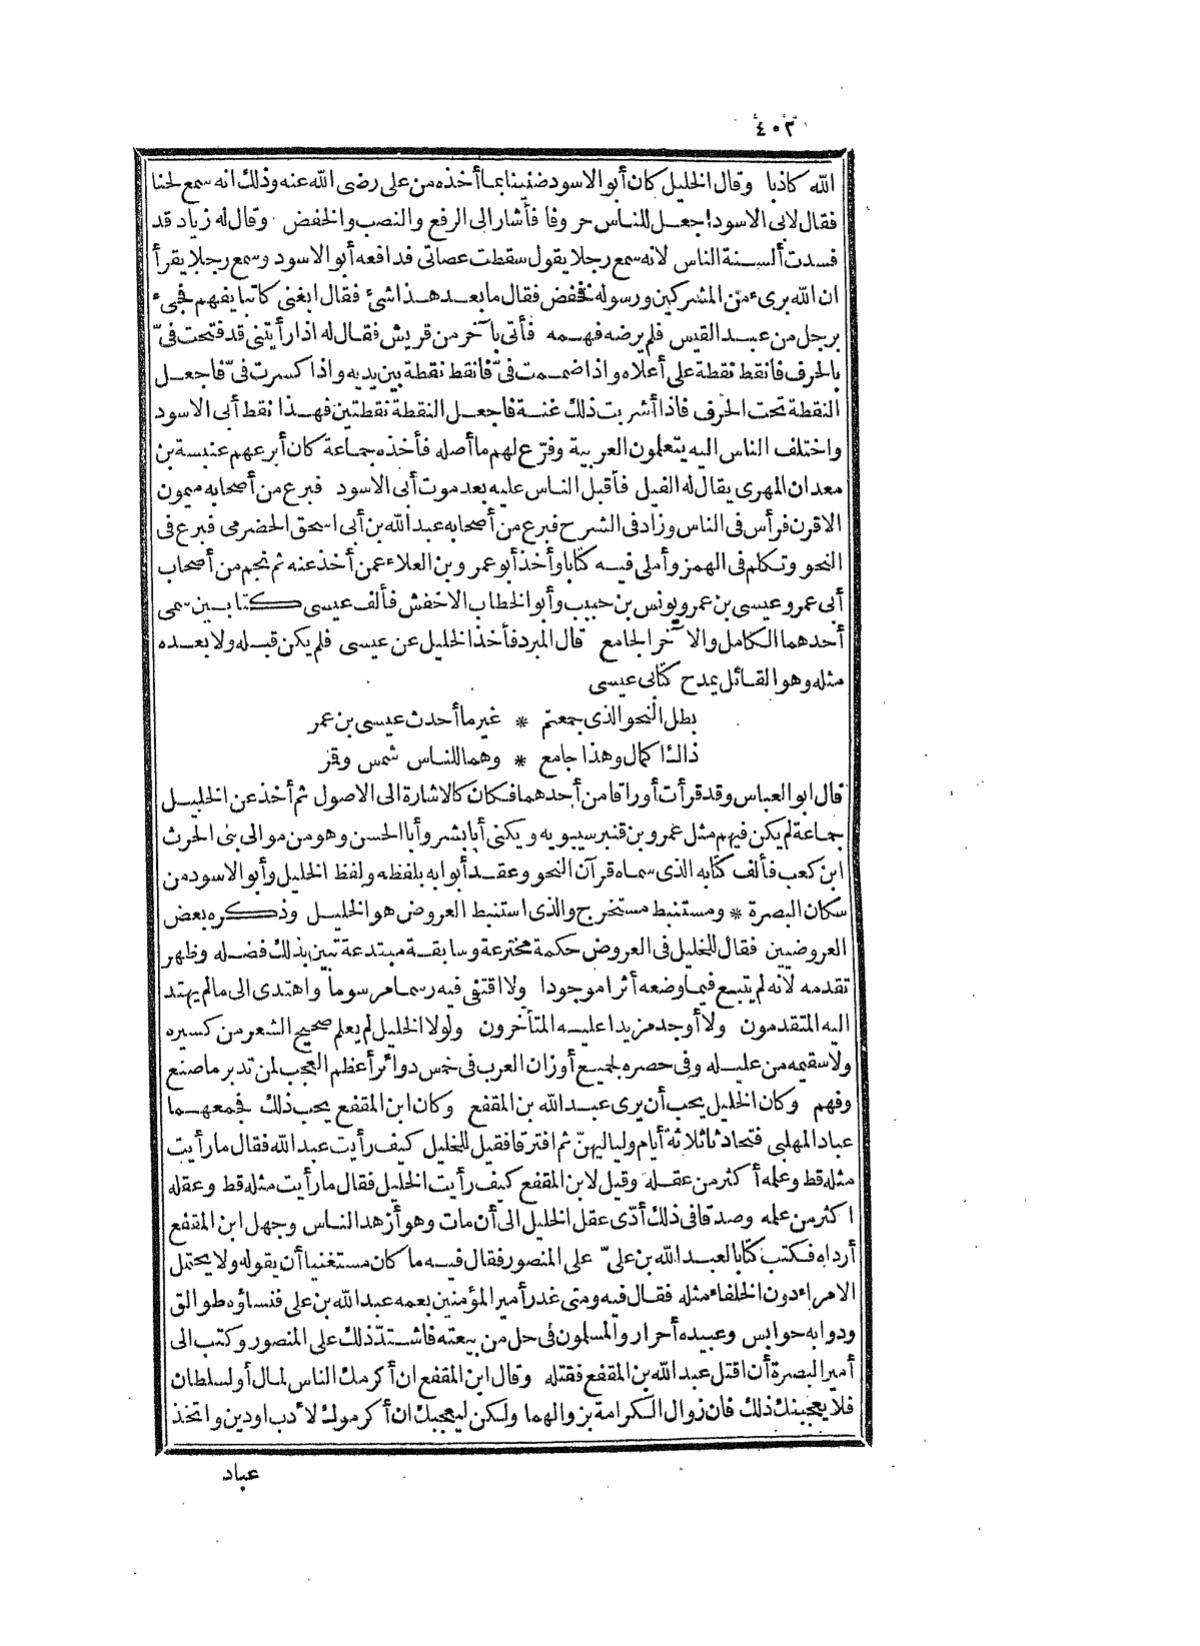 ٤٠٢
الله كاذبا وقال الخليل كان أبو الاسود ضنينا بما أخذه من على رضى الله عنه وذلك انه سمع لحنا
فقال لابى الاسود اجعل للناس حروفا فأشار الى الرفع والنصب والخفض وقال له زياد قد
فسدت ألسنة الناس لانه سمع رجلا يقول سقطت عصاتى فدافعه أبو الاسود وسمع رجلا يقرأ
ان الله برىء من المشركين ورسوله فخفض فقال ما بعد هذا شئ فقال ابغنى كاتبا يفهم فجىء
برجل من عبد القيس فلم يرضه فهمه فأتى بآخر من قريش فقال له اذا رأيتنى قد فتحت فىّ
بالحرف فانقط نقطة على أعلاه واذا ضممت فىّ فانقط نقطة بين يديه واذا كسرت فىّ فاجعل
النقطة تحت الحرف فاذا أشربت ذلك غنة فاجعل النقطة نقطتين فهذا نقط أبى الاسود
واختلف الناس اليه يتعلمون العربية وفرّع لهم ما أصله فأخذه جماعة كان أبرعهم عنبسة بن
معدان المهرى يقال له الفيل فأقبل الناس عليه بعد موت أبى الاسود فبرع من أصحابه ميمون
الاقرن فرأس فى الناس وزاد فى الشرح فبرع من أصحابه عبد الله بن أبى اسحق الحضرمى فبرع فى
النحو وتكلم فى الهمز وأملى فيه كتابا وأخذ أبو عمرو بن العلاء عمن أخذ عنه ثم نجم من أصحاب
أبى عمرو عيسى بن عمر ويونس بن حبيب وأبو الخطاب الاخفش فألف عيسى كتابين سمى
أحدهما الكامل والآخر الجامع قال المبرد فأخذ الخليل عن عيسى فلم يكن قبله ولا بعده
مثله وهو القائل يمدح كتابى عيسى
بطل النحو الذى جمعتم * غير ما أحدث عيسى بن عمر
ذاك اكمال وهذا جامع * وهما للناس شمس وقمر
قال ابو العباس وقد قرأت أوراقا من أحدهما فكان كالاشارة الى الاصول ثم أخذ عن الخليل
جماعة لم يكن فيهم مثل عمرو بن قنبر سيبويه ويكنى أبا بشر وأبا الحسن وهو من موالى بنى الحرث
ابن كعب فألف كتابه الذى سماه قرآن النحو وعقد أبوابه بلفظه ولفظ الخليل وأبو الاسود من
سكان البصرة * ومستنبط مستخرج والذى استنبط العروض هو الخليل وذكره بعض
العروضيين فقال للخليل فى العروض حكمة مخترعة وسابقة مبتدعة تبين بذلك فضله وظهر
تقدمه لانه لم يتبع فيما وضعه أثرا موجودا ولا اقتفى فيه رسما مرسوما واهتدى الى ما لم يهتد
اليه المتقدمون ولا أوجد مزيدا عليه المتأخرون ولولا الخليل لم يعلم صحيح الشعر من كسيره
ولا سقيمه من عليله وفى حصره لجميع أوزان العرب فى خمس دوائر أعظم العجب لمن تدبر ما صنع
وفهم وكان الخليل يحب أن يرى عبد الله بن المقفع وكان ابن المقفع يحب ذلك فجمعهما
عباد المهلبى فتحادثا ثلاثة أيام ولياليهنّ ثم افترقا فقيل للخليل كيف رأيت عبد الله فقال ما رأيت
مثله قط وعلمه أكثر من عقله وقيل لابن المقفع كيف رأيت الخليل فقال ما رأيت مثله قط وعقله
اكثر من علمه وصدقا فى ذلك أدّى عقل الخليل الى أن مات وهو أزهد الناس وجهل ابن المقفع
أرداه فكتب كتابا لعبد الله بن علىّ على المنصور فقال فيه ما كان مستغنيا أن يقوله ولا يحتمل
الامراء دون الخلفاء مثله فقال فيه ومتى غدر أمير المؤمنين بعمه عبد الله بن على فنساؤه طوالق
ودوابه حوابس وعبيده أحرار والمسلمون فى حل من بيعته فاشتدّ ذلك على المنصور وكتب الى
أمير البصرة أن اقتل عبد الله بن المقفع فقتله وقال ابن المقفع ان أكرمك الناس لمال أو لسلطان
فلا يعجبنك ذلك فان زوال الكرامة بزوالهما ولكن ليعجبك ان أكرموك لأدب او دين واتخذ
عباد